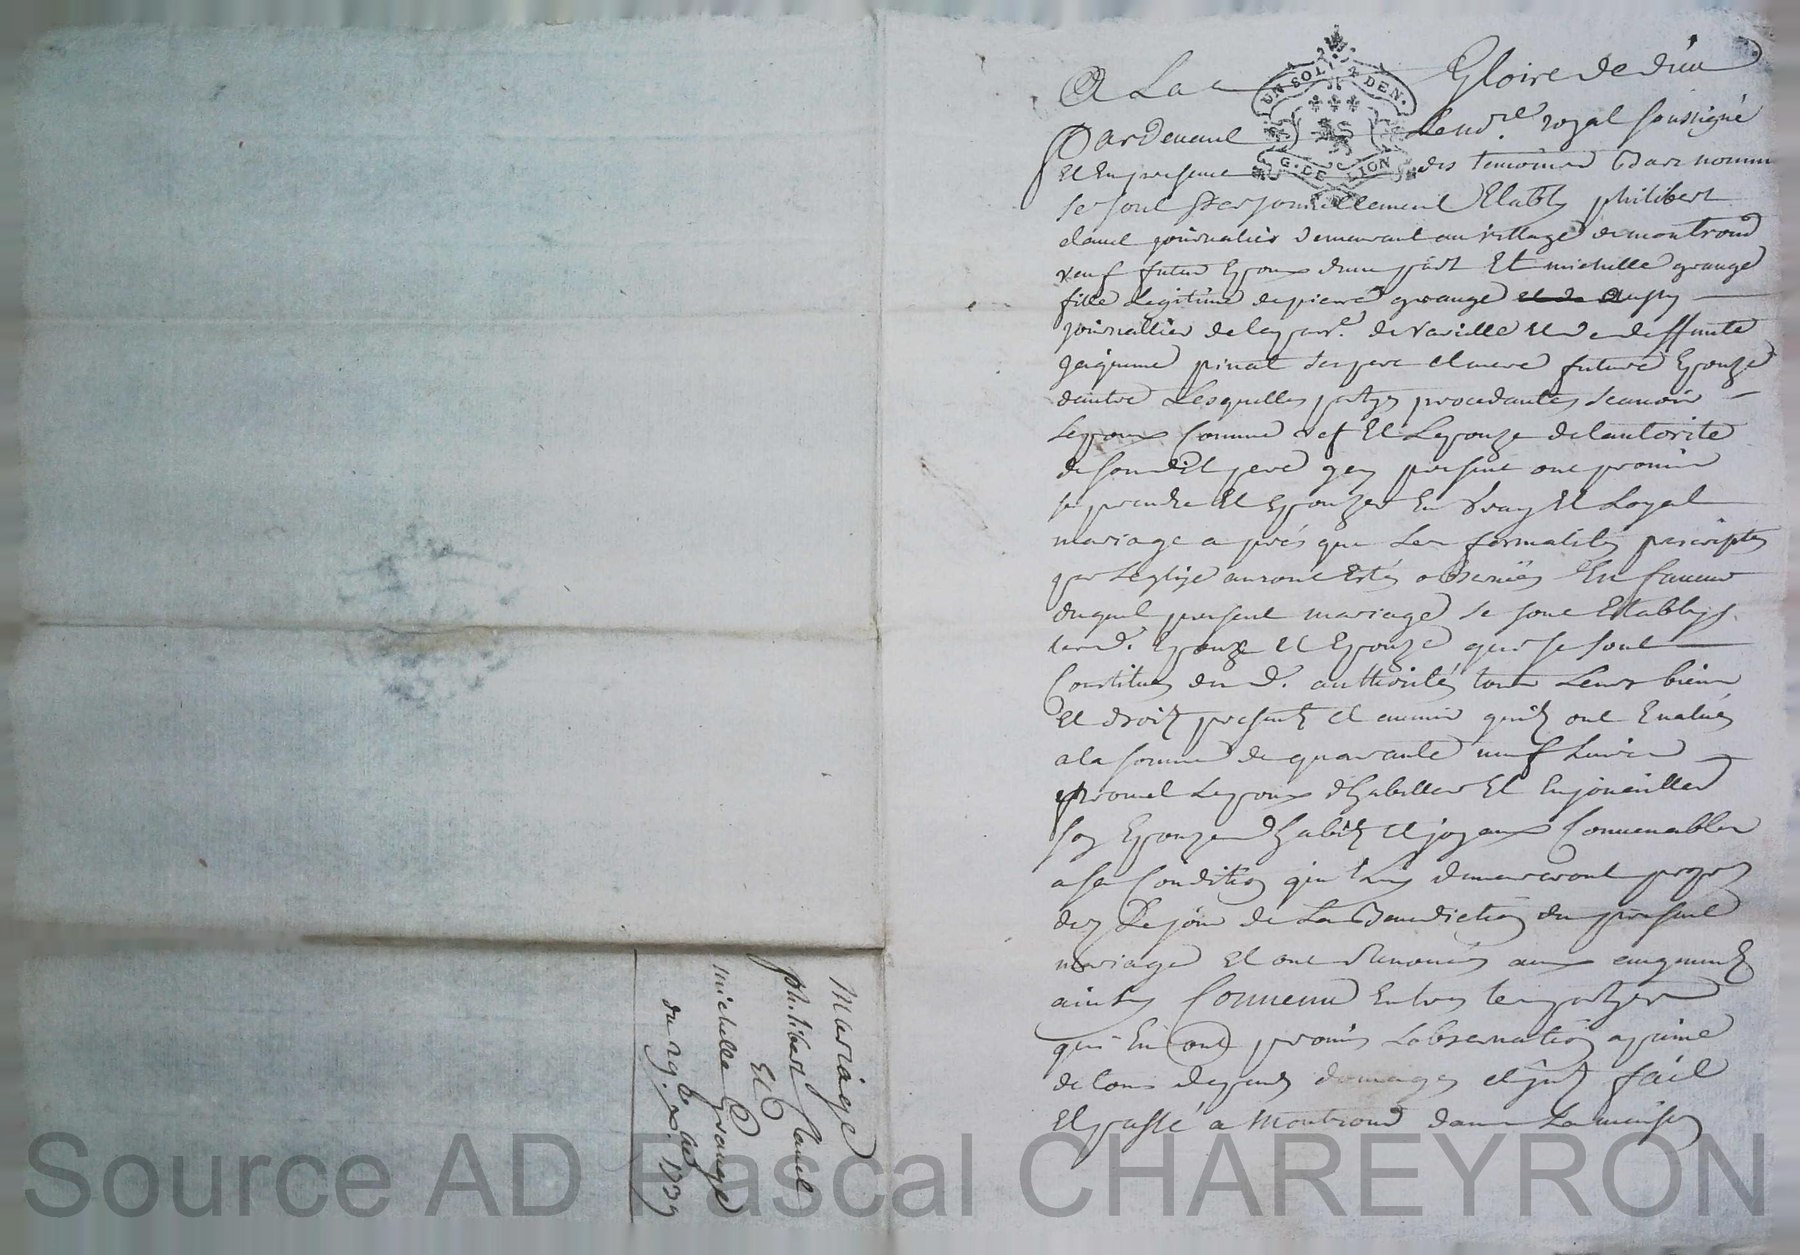 A La Gloire de dieu
UN SOL 4 DEN.
G. DE LION
Pardevant Le nore. royal soussigné
Et En presence des temoins Bas nommes
se sont Personnellement Etably philibert
claud journalier demeurant au village de montrond
veuf futur Epoux d'une part Et michelle grange
fille Legitime de pierre grange
journallier de la parre. de et de deffunte
jaquême pinat ses pere et mere future Epouze
d'autre Lesquelles partyes procedantes scauoir
Lepoux Comme Et Lepouze de lautorite
de son dit pere ycy present ont promis
se prendre Et Epouzer En Vray Et Loyal
mariage aprés que Les formalites prescriptes
par Leglize auront Estés observées En faueur
duquel present mariage se sont Etablys
lesd. Epoux Et Epouze qui se sont
Constitues dud. authorités tous Leurs biens
Et droits presents et auenir quils ont Eualués
a la somme de quarante neuf Liures
promet Lepoux dhabiller Et Enjoueiller
son Epouze dhabits et joyaux Conuenables
a sa Condition qui luy demeureront propres
dez Le jour de La Benediction du present
mariage Et ont Renoncés aux augments
ainsy Conuenu Entre les partyes
qui En ont promis Lobseruation a peine
de tous depends domages et jnts fait
Et passé a Montrond dans La maison
Mariage
philibert Claud
Et
michelle Grange
du 29. xbre. 1739
Source AD Pascal CHAREYRON